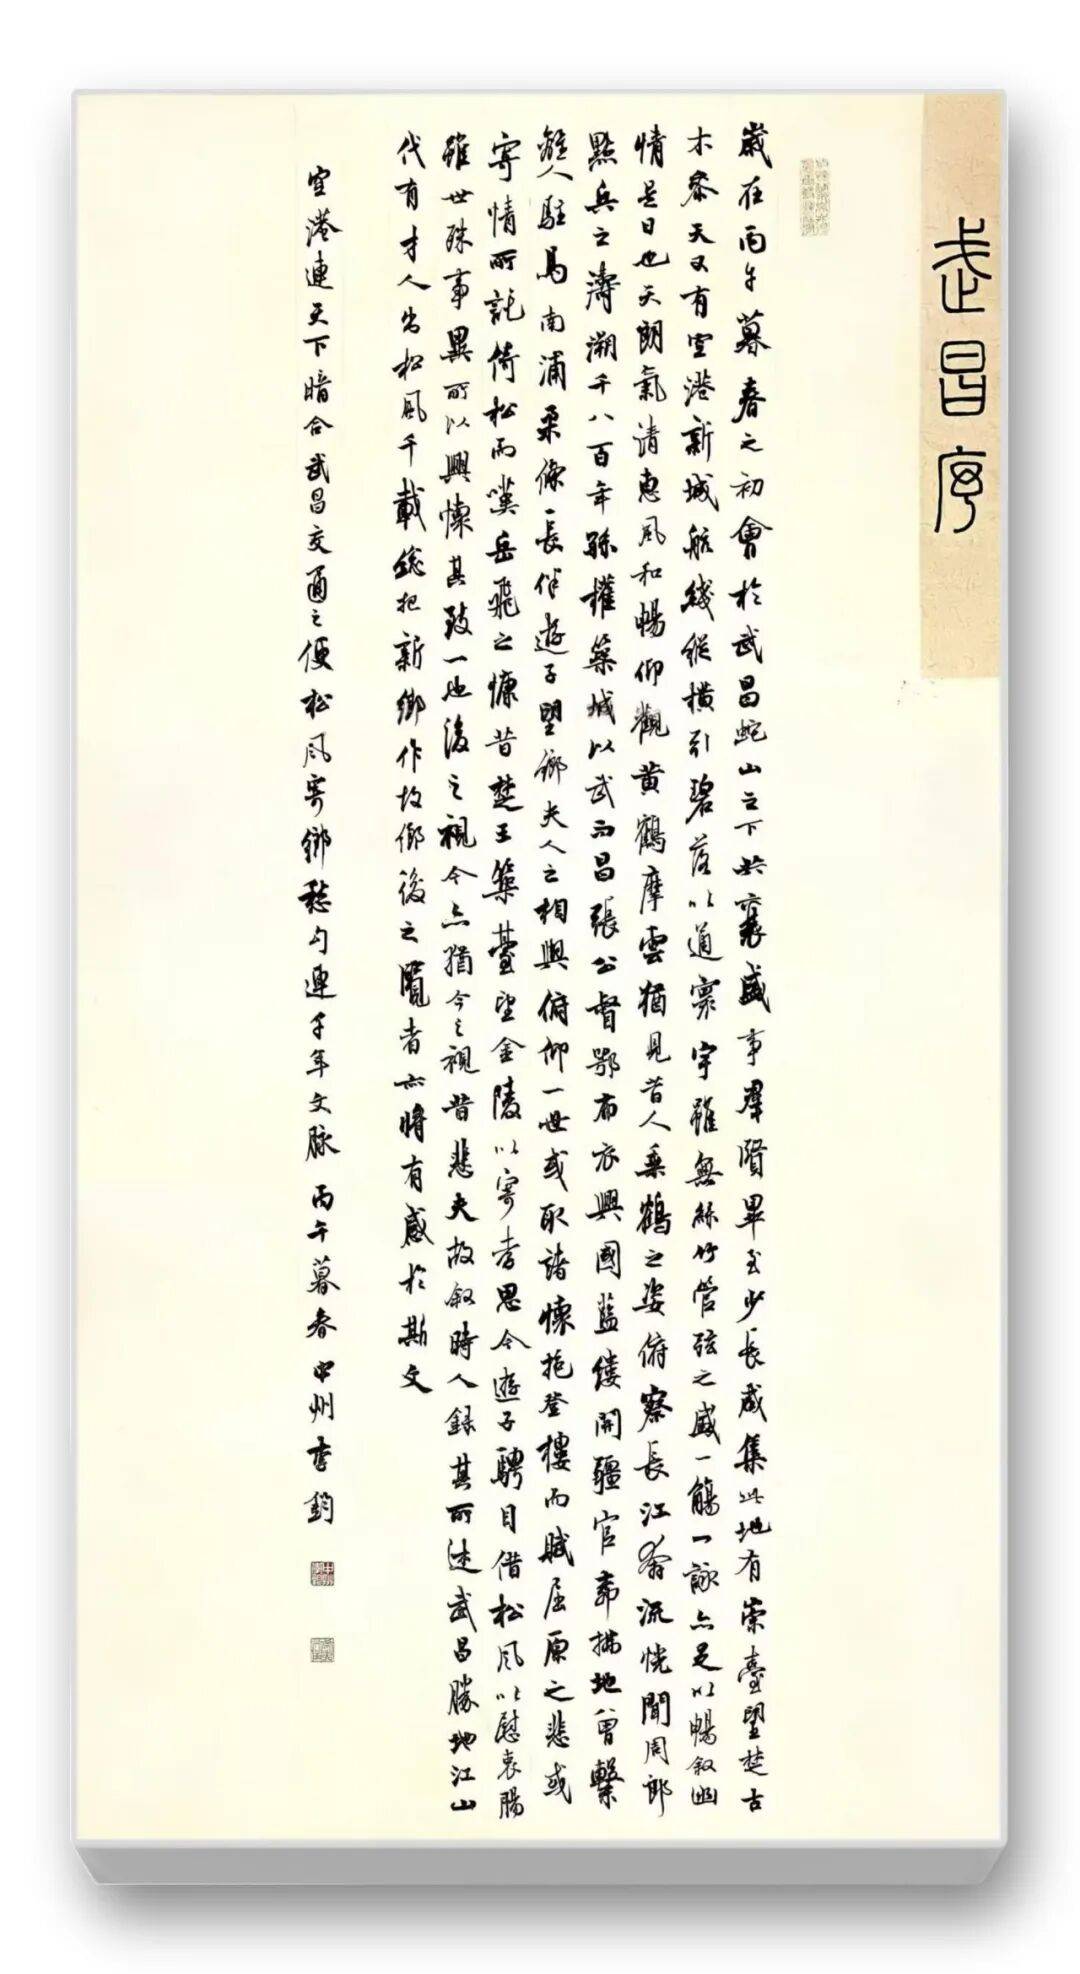 武昌序
歲在丙午暮春之初會於武昌蛇山之下共襄盛事羣賢畢至少長咸集此地有崇臺望楚古
木參天又有空港新城航綫縱橫引碧落以通寰宇雖無絲竹管弦之盛一觴一詠亦足以暢叙幽
情是日也天朗氣清惠風和暢仰觀黃鶴摩雲猶見昔人乘鶴之姿俯察長江奔流恍聞周郎
點兵之濤溯千八百年孫權築城以武而昌張公督鄂布衣興國藍縷開疆官柳拂地曾繫
離人駐馬南浦柔條長伴遊子望鄉夫人之相與俯仰一世或取諸懷抱登樓而賦屈原之悲或
寄情所託倚松而嘆岳飛之慷昔楚王築臺望金陵以寄孝思今遊子騁目借松風以慰衷腸
雖世殊事異所以興懷其致一也後之視今亦猶今之視昔悲夫故叙時人錄其所述武昌勝地江山
代有才人出松風千載能把新鄉作故鄉後之覽者亦將有感於斯文
空港連天下暗合武昌交通之便松風寄鄉愁勾連千年文脉 丙午暮春中州李鈞